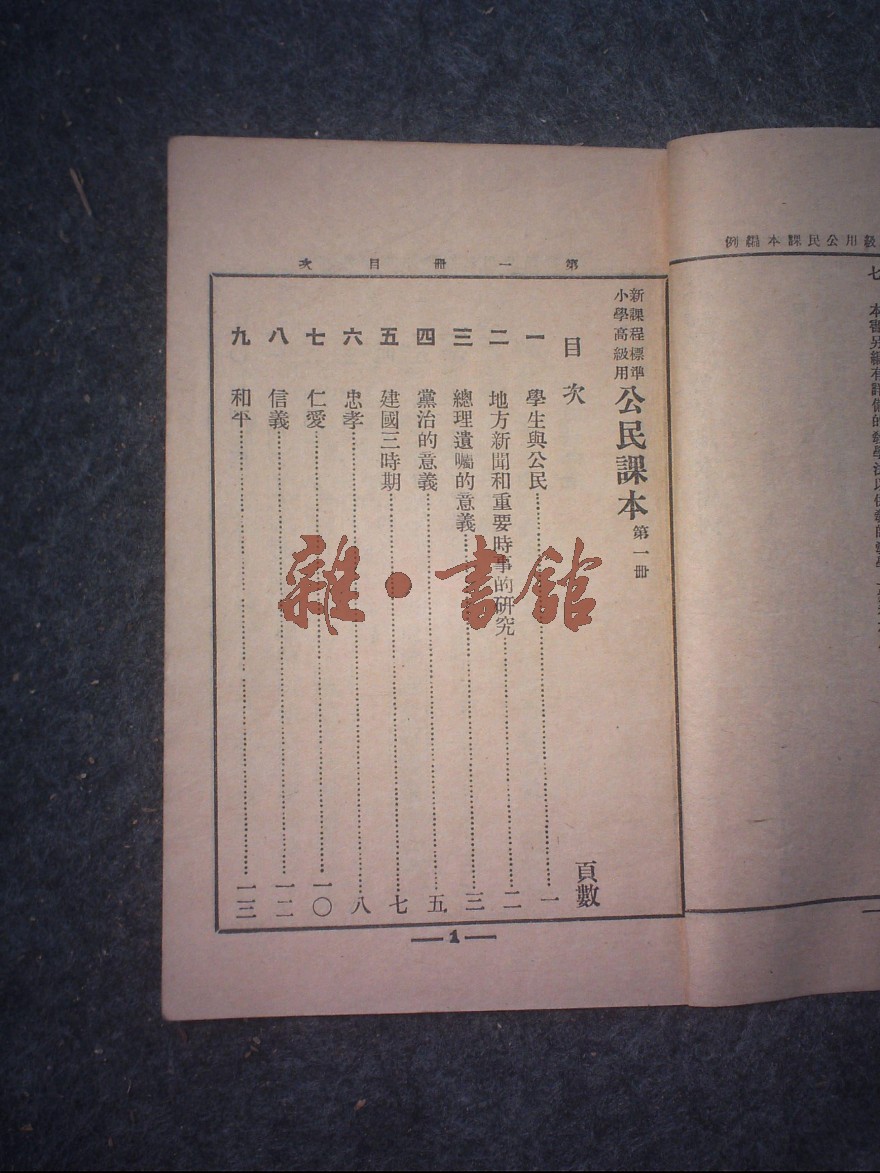 級用公民課本編輯例
七　本書另編有詳備的教學法以供教師教學
第一册目次
新課程標準
小學高級用
公民課本 第一册
目次　頁數
一　學生與公民……一
二　地方新聞和重要時事的研究……二
三　總理遺囑的意義……三
四　黨治的意義……五
五　建國三時期……七
六　忠孝……八
七　仁愛……一〇
八　信義……一二
九　和平……一三
—1—
雜·書館